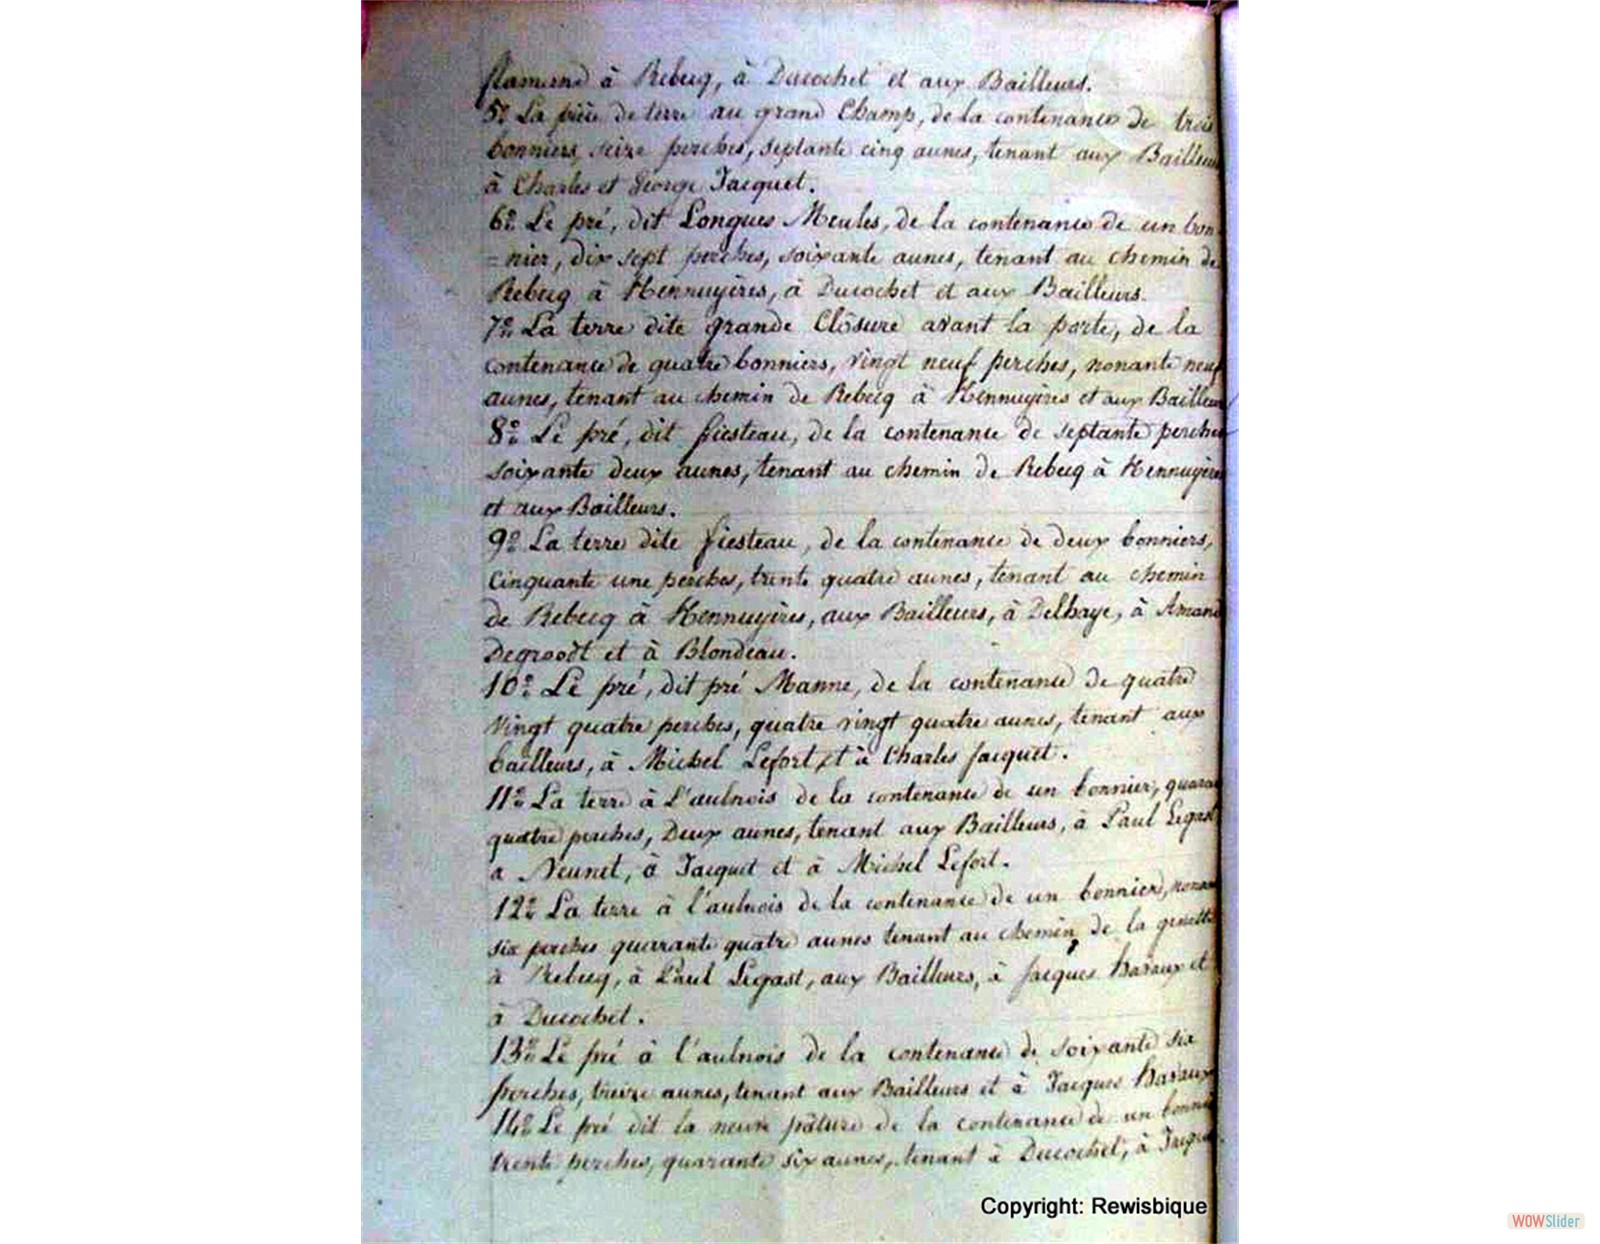 flamend à Rebecq, à Ducochet et aux Bailleurs.
5° La pièce de terre au grand Champ, de la contenance de trois
bonniers, seize perches, septante cinq aunes, tenant aux Bailleurs
à Charles et George Jacquet.
6° Le pré, dit Longues Meules, de la contenance de un bon
=nier, dix sept perches, soixante aunes, tenant au chemin de
Rebecq à Hennuyères, à Ducochet et aux Bailleurs.
7° La terre dite grande Clôsure avant la porte, de la
contenance de quatre bonniers, vingt neuf perches, nonante neuf
aunes, tenant au chemin de Rebecq à Hennuyères et aux Bailleurs
8° Le pré, dit fiesteau, de la contenance de septante perches
soixante deux aunes, tenant au chemin de Rebecq à Hennuyères
et aux Bailleurs.
9° La terre dite fiesteau, de la contenance de deux bonniers,
Cinquante une perches, trente quatre aunes, tenant au chemin
de Rebecq à Hennuyères, aux Bailleurs, à Delhaye, à Amand
Degroodt et à Blondeau.
10° Le pré, dit pré Manne, de la contenance de quatre
vingt quatre perches, quatre vingt quatre aunes, tenant aux
bailleurs, à Michel Lefort, et à Charles Jacquet.
11° La terre à L'aulnois de la contenance de un bonnier,
quatre perches, Deux aunes, tenant aux Bailleurs, à Paul Legast
a Neunet, à Jacquet et à Michel Lefort.
12° La terre à l'aulnois de la contenance de un bonnier,
six perches quarante quatre aunes tenant au chemin de la genette
à Rebecq, à Paul Legast, aux Bailleurs, à Jacques havaux et
à Ducochet.
13° Le pré à l'aulnois de la contenance de soixante six
perches, treize aunes, tenant aux Bailleurs et à Jacques havaux
14° Le pré dit la neuve pâture de la contenance de un bonnier
trente perches, quarante six aunes, tenant à Ducochet, à
Copyright: Rewisbique
WOWSlider